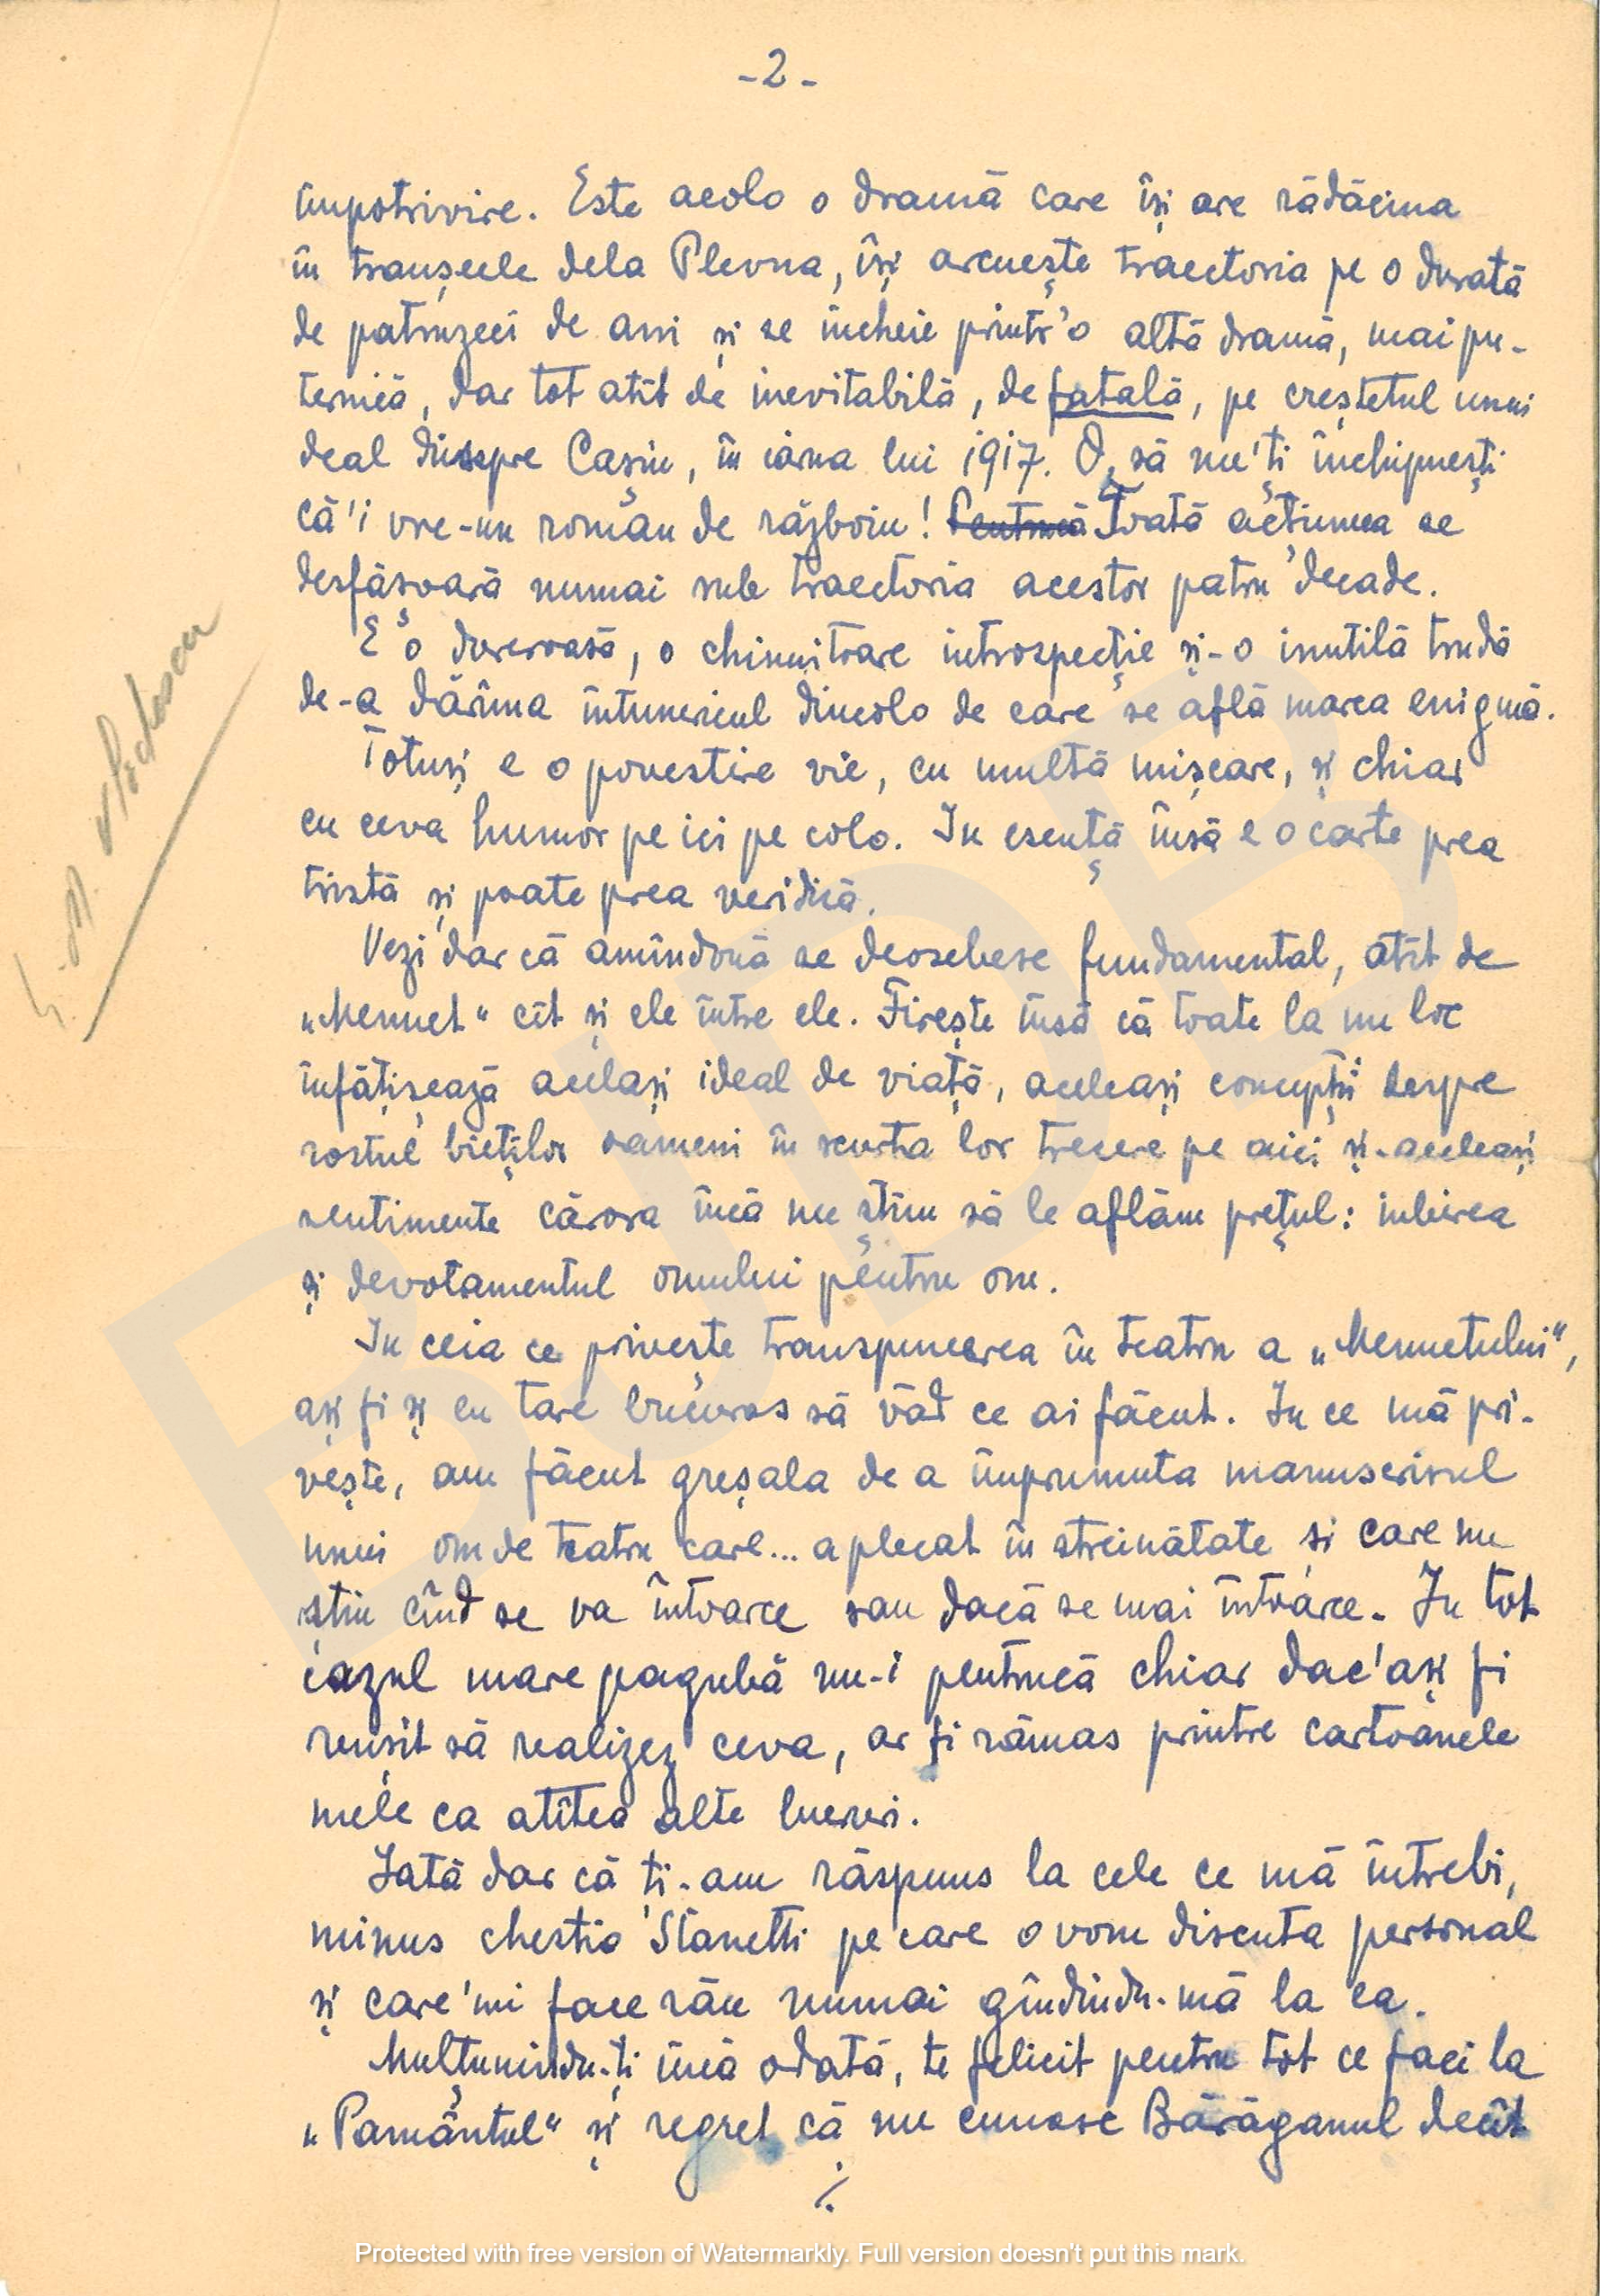 -2-
împotrivire. Este acolo o dramă care își are rădăcina
în tranșeele dela Plevna, își arcuește traectoria pe o durată
de patruzeci de ani și se încheie printr'o altă dramă, mai pu-
ternică, dar tot atît de inevitabilă, de fatală, pe creștetul unui
deal dinspre Cașin, în iarna lui 1917. O, să nu'ți închipuești
că'i vre-un roman de războiu! Pentrucă Toată acțiunea se
desfășoară numai sub traectoria acestor patru decade.
E o dureroasă, o chinuitoare introspecție și-o inutilă trudă
de-a dărîma întunericul dincolo de care se află marea enigmă.
Totuși e o povestire vie, cu multă mișcare, și chiar
cu ceva humor pe ici pe colo. In esență însă e o carte prea
tristă și poate prea veridică.
Vezi dar că amîndouă se deosebesc fundamental, atît de
„Menuet" cît și ele între ele. Firește însă că toate la un loc
înfățișează același ideal de viață, aceleași concepții despre
rostul bieților oameni în scurta lor trecere pe aici și-aceleași
sentimente cărora încă nu știm să le aflăm prețul: iubirea
și devotamentul omului pentru om.
In ceia ce privește transpunerea în teatru a „Menuetului",
aș fi și eu tare bucuros să văd ce ai făcut. In ce mă pri-
vește, am făcut greșala de a împrumuta manuscrisul
unui om de teatru care... a plecat în streinătate și care nu
știu cînd se va întoarce sau dacă se mai întoarce. In tot
cazul mare pagubă nu-i pentrucă chiar dac'aș fi
reușit să realizez ceva, ar fi rămas printre cartoanele
mele ca atîtea alte lucruri.
Iată dar că ți-am răspuns la cele ce mă întrebi,
minus chestia Stanetti pe care o vom discuta personal
și care'mi face rău numai gîndindu-mă la ea.
Mulțumindu-ți încă odată, te felicit pentru tot ce faci la
„Pamântul" și regret că nu cunosc Bărăganul decît
./.
Vlădescu
BJDP
Protected with free version of Watermarkly. Full version doesn't put this mark.